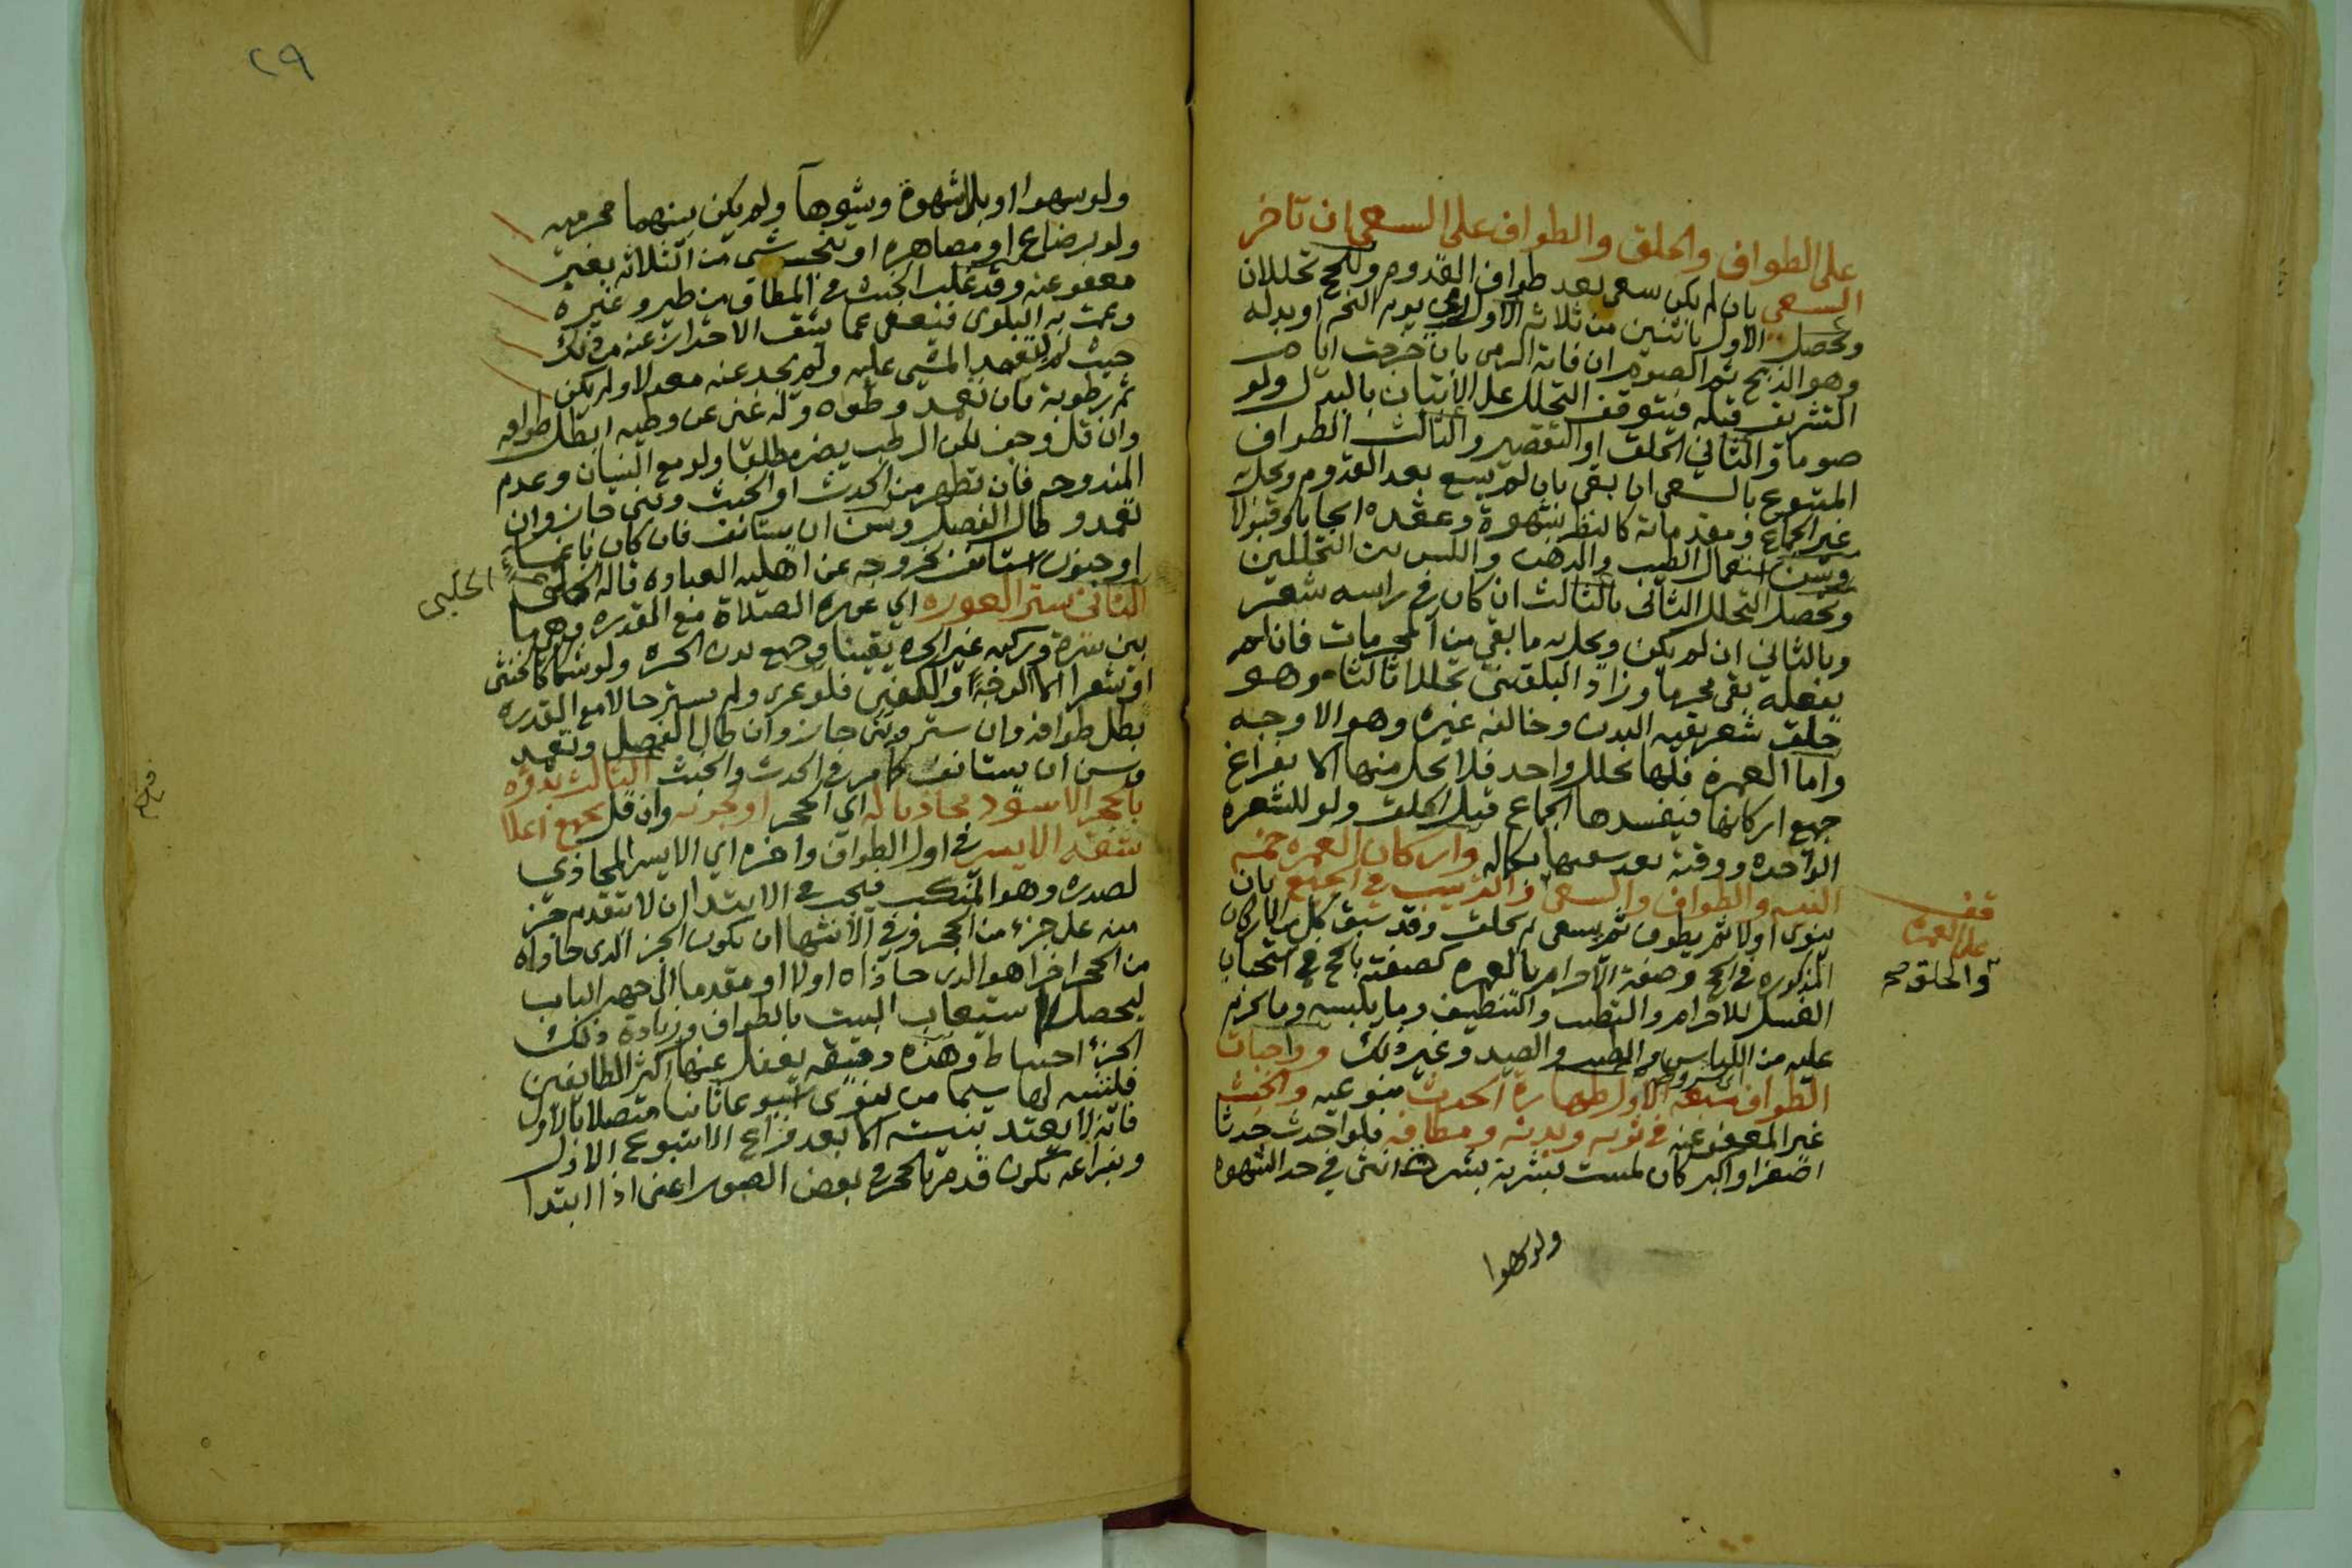 على الطواف والحلق والطواف على السعي ان تاخر
السعي بان لم يكن سعى بعد طواف القدوم وللحج تحللان
ويحصل الاول باثنين من ثلاثة الاول رمي يوم النحر او بدله
وهو الذبح ثم الصوم ان فاته الرمي بان خرجت ايام
التشريق قبله فيتوقف التحلل على الاتيان بالبدل ولو
صوما والثاني الحلق او التقصير والثالث الطواف
المتبوع بالسعي ان بقي بان لم يسع بعد القدوم ويحل به
غير الجماع ومقدماته كالنظر بشهوة وعقده ايجابا وقبولا
وسن استعمال الطيب والدهن واللبس بين التحللين
ويحصل التحلل الثاني بالثالث ان كان في راسه شعر
وبالثاني ان لم يكن ويحل به ما بقي من المحرمات فان لم
يفعله بقي محرما وزاد البلقيني تحللا ثالثا وهو
حلق شعر بقية البدن وخالفه غيره وهو الاوجه
واما العمرة فلها تحلل واحد فلا تحل منها الا بفراغ
جميع اركانها فيفسدها الجماع قبل الحلق ولو للشعرة
الواحدة ووقته بعد سعيها بكماله واركان العمره خمسه
النيه والطواف والسعي والترتيب في الجميع بان
ينوي اولا ثم يطوف ثم يسعى ثم يحلق وقد سبق كل الاركان
المذكوره في الحج وصفة الاحرام بالعمره كصفته بالحج في استحباب
الغسل للاحرام والتطيب والتنظيف وما يلبسه وما يحرم
عليه من اللباس والطيب والصيد وغير ذلك وواجبات
الطواف سبعه الاول طهارة الحدث بنوعيه والخبث
غير المعفو عنه في ثوبه وبدنه ومطافه فلو احدث حدثا
اصغرا او اكبر كان لمست بشرته بشرة انثى في حد الشهوه
ولو سهوا
قف
على العمره
والحلق صح
٢٩
ولو سهوا او بلا شهوة وشوها ولم يكن بينهما محرميه
ولو برضاع او مصاهره او تنجس شي من الثلاثه بغير
معفو عنه وقد غلب الخبث في المطاف من طير وغيره
وعمت به البلوى فيعفى عما يشق الاحتراز عنه من ذلك
حيث لم يتعمد المشي عليه ولم يجد عنه معدلا ولم يكن
ثم رطوبة فان تعمد وطؤه وله غنى عن وطيه ابطل طوافه
وان قل وجف لكن الرطب يضر مطلقا ولو مع النسيان وعدم
المندوحه فان تطهر من الحدث او الخبث وبنى جاز وان
تعمد وطال الفصل وسن ان يستانف فان كان باغماء
او جنون استانف لخروجه عن اهلية العباده قاله
الحلبي
الثاني ستر العوره اي عورة الصلاة مع القدره وهو ما
بين سرة وركبه غير الحره يقينا وجميع بدن الحره ولو شكا كالخنثى
او شعرا الا الوجه والكفين فلو عري ولم يستر حالا مع القدره
بطل طوافه وان ستر وبنى جاز وان طال الفصل وتعمد
وسن ان يستانف كما مر في الحدث والخبث الثالث بدؤه
بالحجر الاسود محاذيا له اي الحجر او لجزئه وان قل بجميع اعلا
شقه الايسر في اول الطواف واخره اي الايسر المحاذي
لصدره وهو المنكب فيجب في الابتدا ان لا يتقدم جزء
منه على جزء من الحجر وفي الانتهاء ان يكون الجزء الذي حاذاه
من الحجر اخرا هو الذي حاذاه اولا او مقدما الى جهة الباب
ليحصل استيعاب البيت بالطواف وزيادة ذلك
الجزء احتياط وهذه دقيقه يغفل عنها اكثر الطايفين
فليتنبه لها سيما من ينوي اسبوعا ثانيا متصلا بالاول
فانه لا يعتد بنيته الا بعد فراغ الاسبوع الاول
وبفراغه يكون قد مر بالحجر في بعض الصور اعني اذا ابتدا